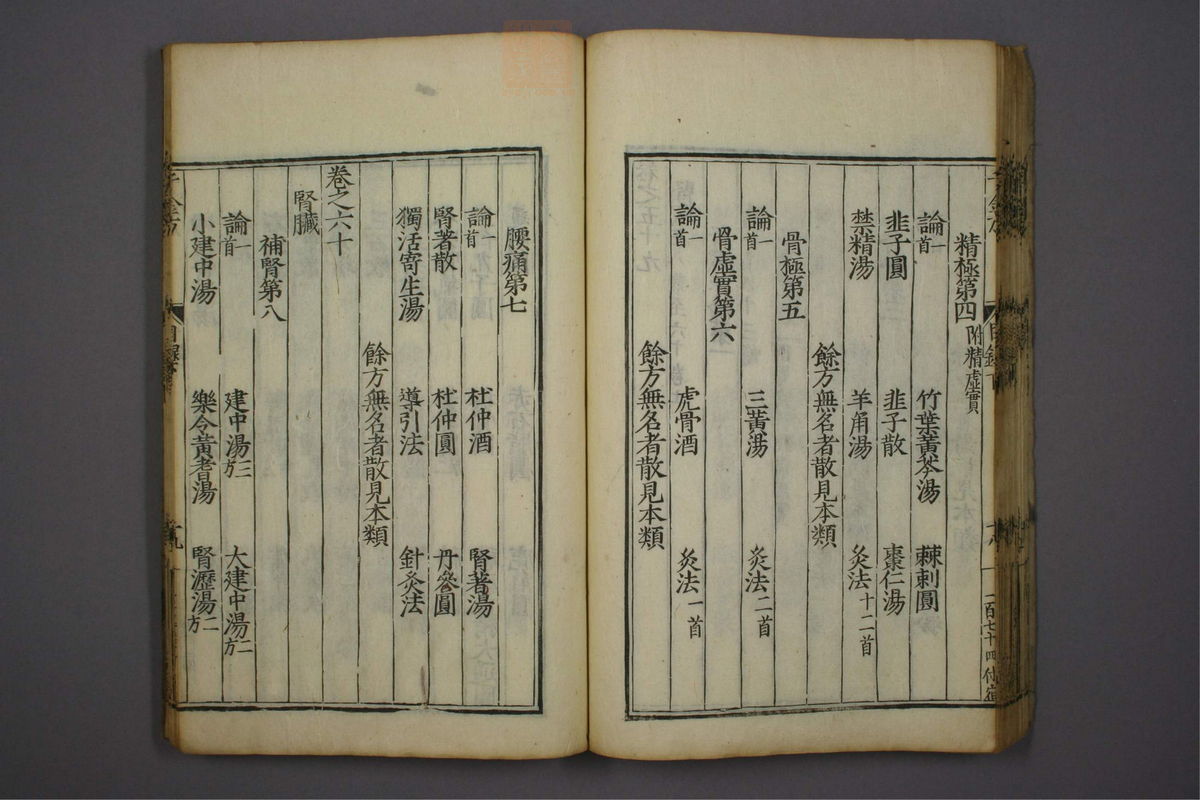 精極第四附精虛實
論一首 竹葉黃芩湯 棘刺圓
韭子圓 韭子散 棗仁湯
禁精湯 羊角湯 灸法十二首
餘方無名者散見本類
骨極第五
論一首 三黃湯 灸法二首
骨虛實第六
論一首 虎骨酒 灸法一首
餘方無名者散見本類
腰痛第七
論一首 杜仲酒 腎著湯
腎著散 杜仲圓 丹參圓
獨活寄生湯 導引法 針灸法
餘方無名者散見本類
卷之六十
腎臟
補腎第八
論一首 建中湯三方 大建中湯二方
小建中湯 樂令黃耆湯 腎瀝湯二方